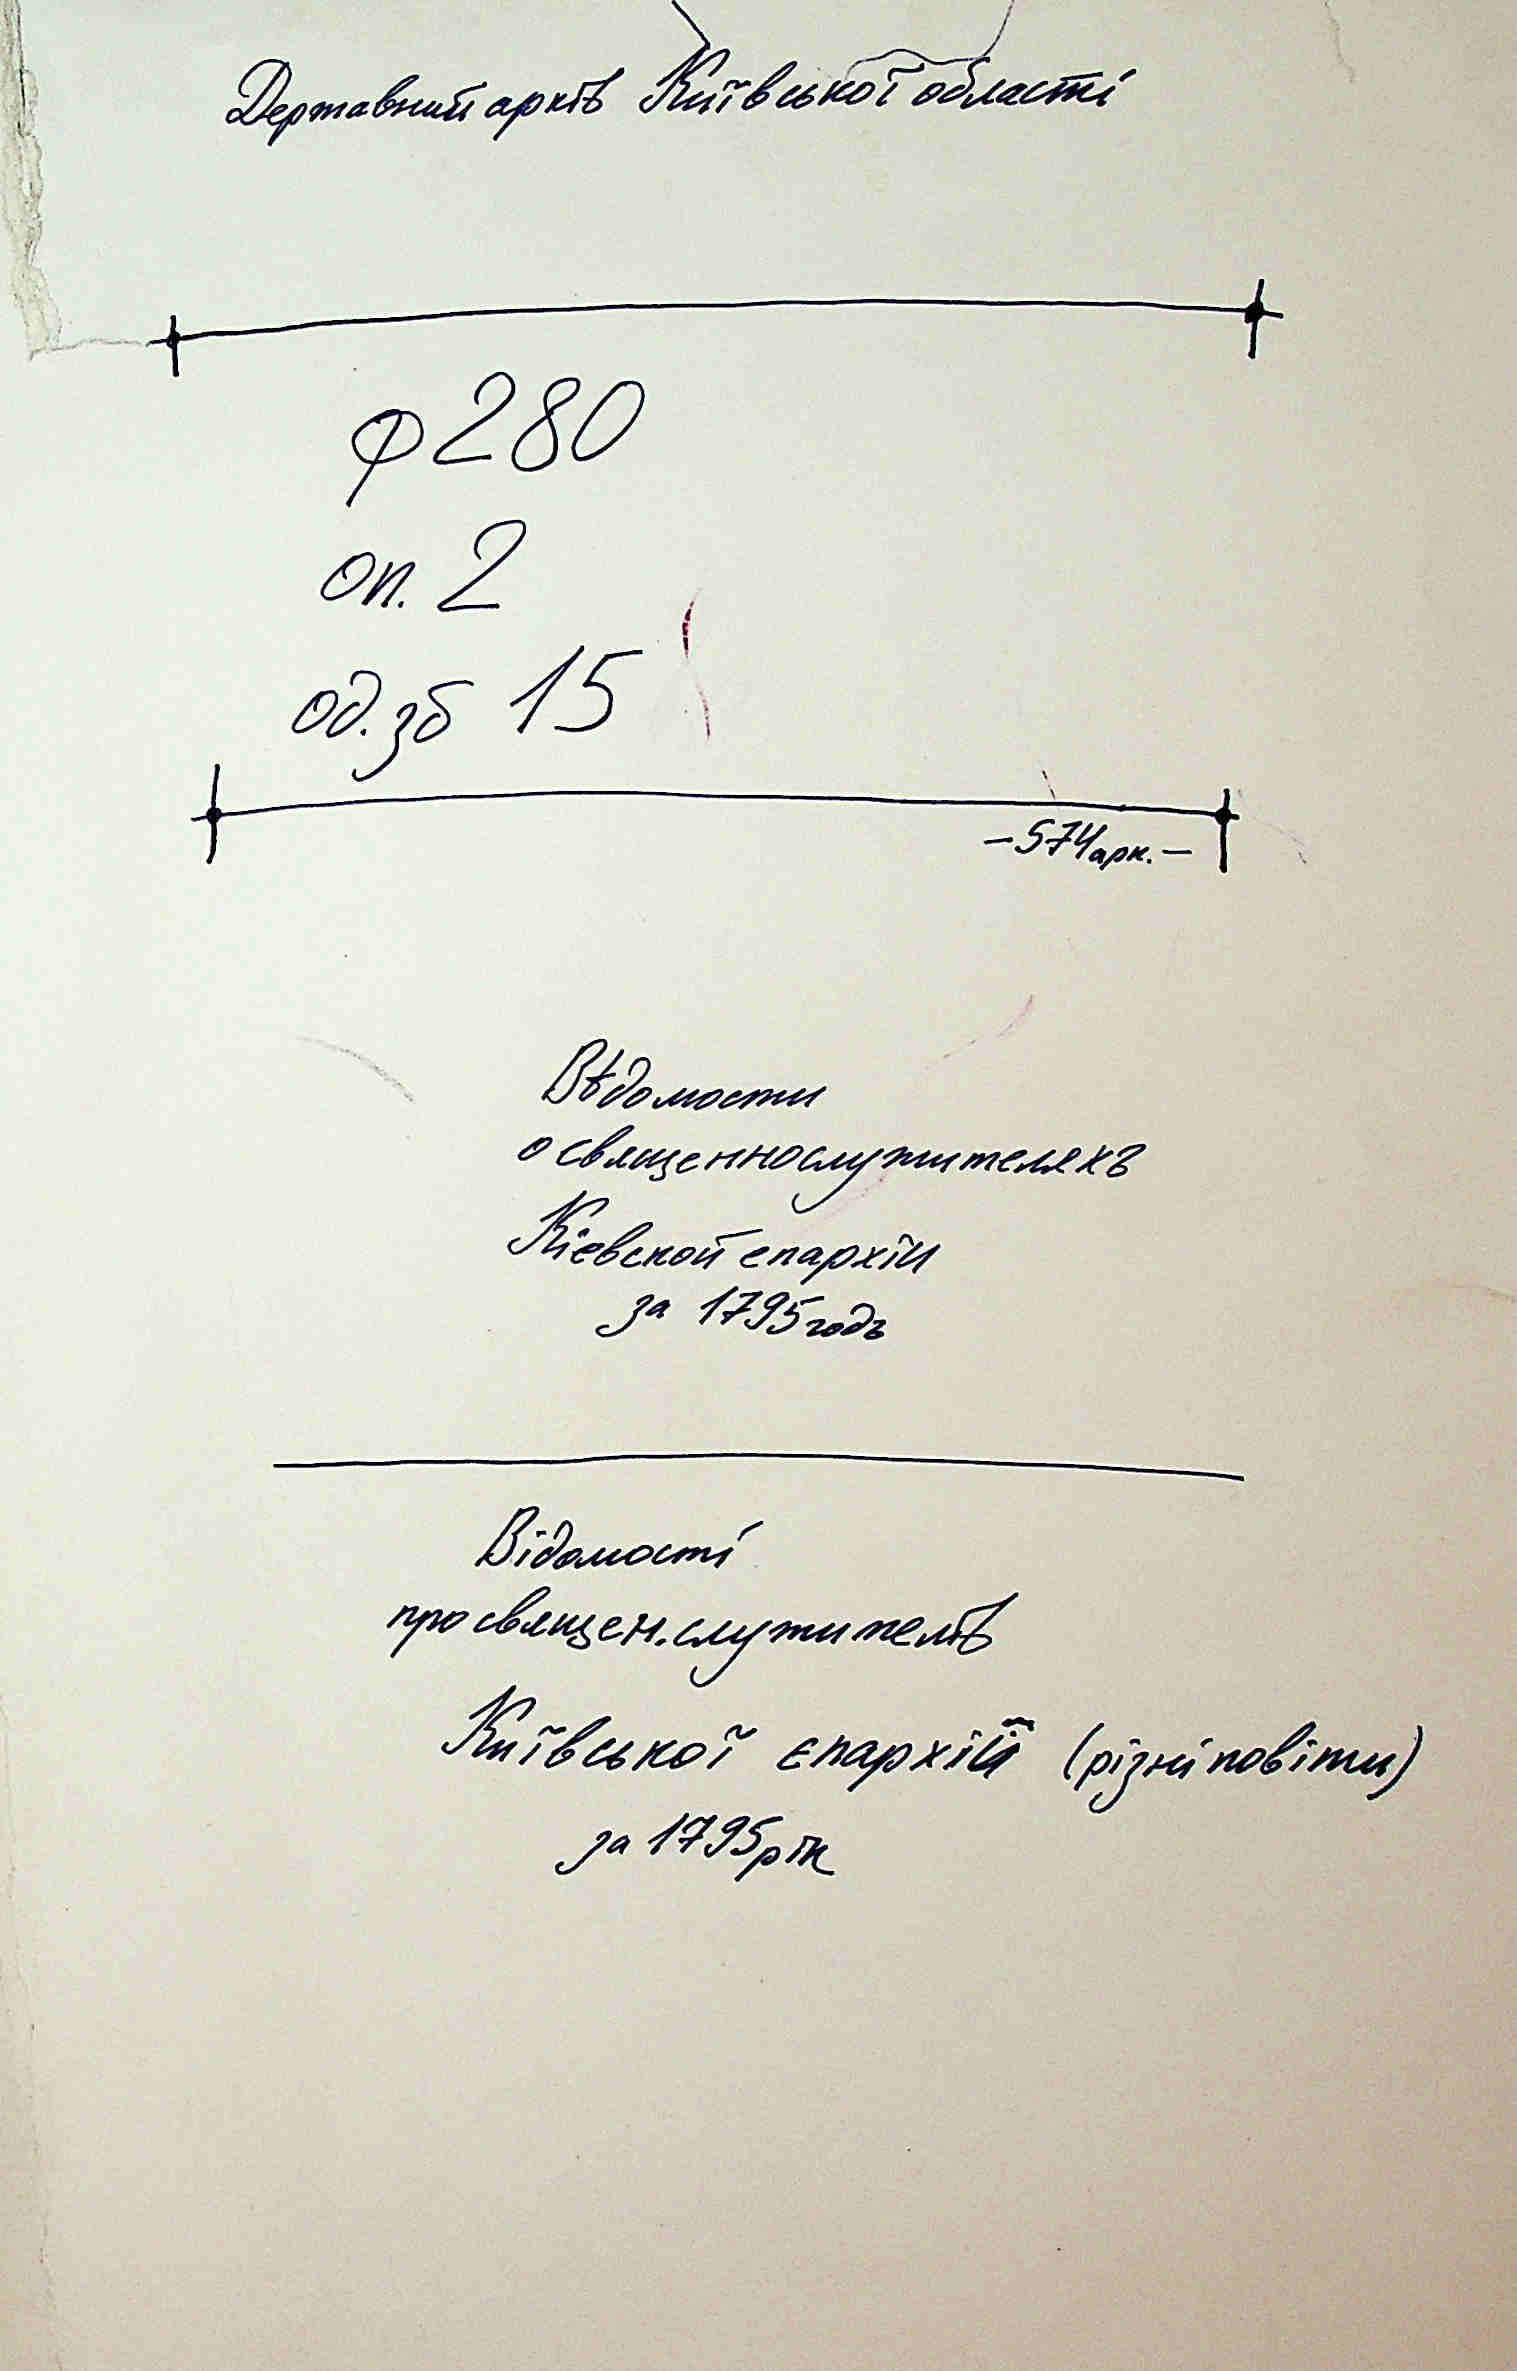 Державний архів Київської області
ф 280
оп. 2
од. зб 15
– 574 арк. –
Вѣдомости
о священнослужителяхъ
Кіевской епархіи
за 1795 годъ
Відомості
про священ. служителів
Київської єпархії (різні повіти)
за 1795 рік